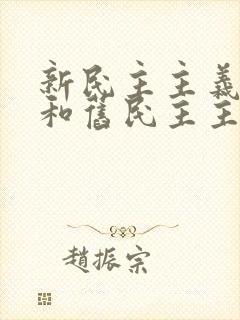 新民主主義
和舊民主主
趙振宗